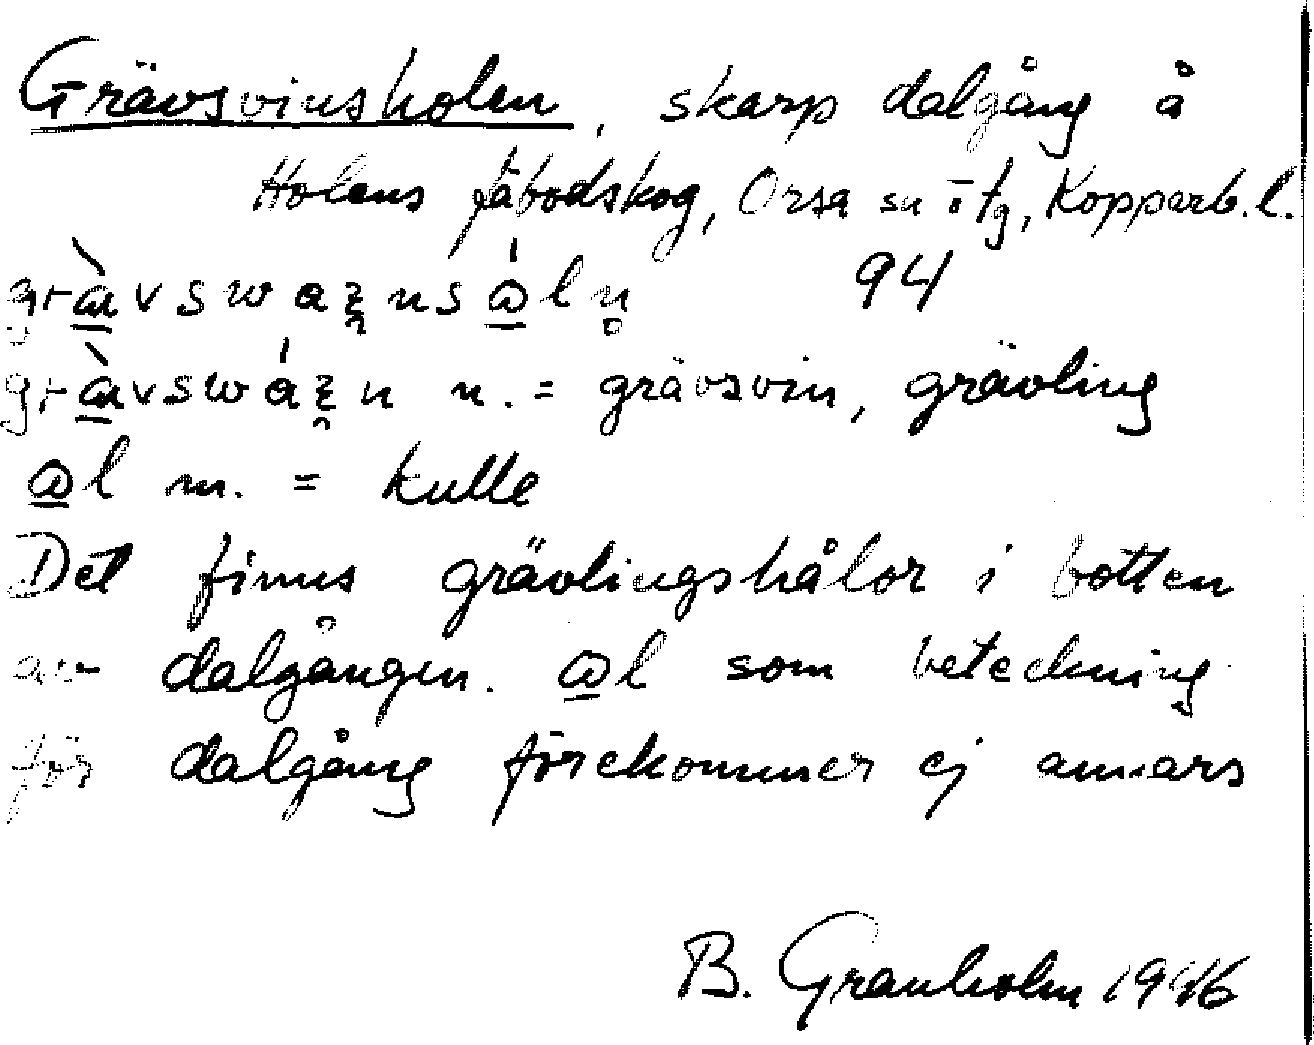 Grävsvinsholen, skarp dalgång å
Holens fäbodskog, Orsa sn o tg, Kopparb. l.
94
n. = grävsvin, grävling
m. = kulle
Det finns grävlingshålor i botten
av dalgången. som beteckning
för dalgång förekommer ej annars
B. Granholm 1946